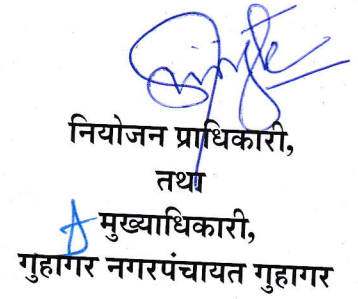 नियोजन प्राधिकारी,
तथा
मुख्याधिकारी,
गुहागर नगरपंचायत गुहागर